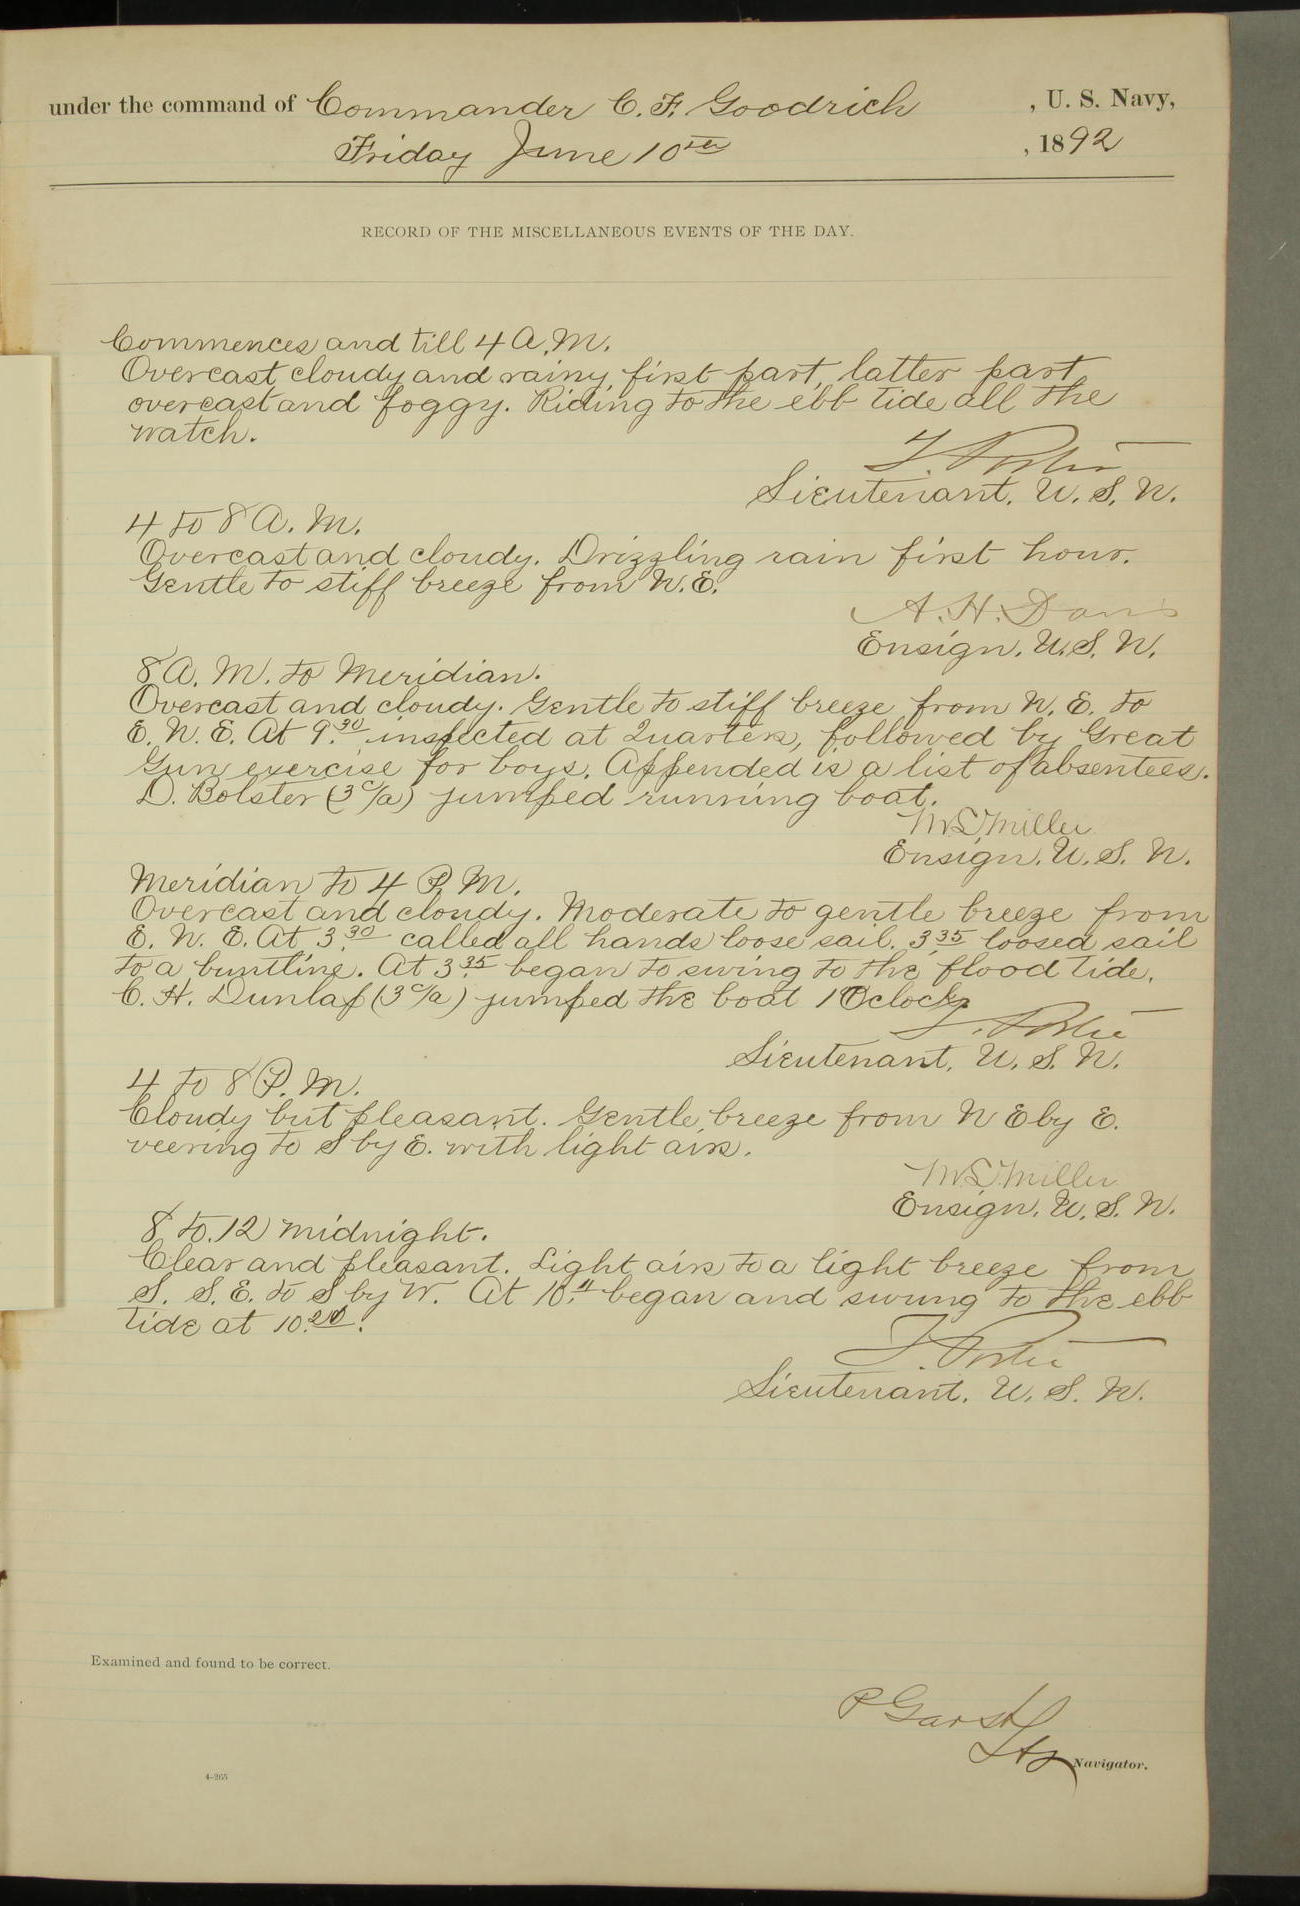 under the command of Commander C. F. Goodrich , U. S. Navy,
Friday June 10th , 1892
RECORD OF THE MISCELLANEOUS EVENTS OF THE DAY.
Commences and till 4 A.M.
Overcast cloudy and rainy, first part, latter part
overcast and foggy. Riding to the ebb tide all the
watch.
Lieutenant. U. S. N.
4 to 8 A. M.
Overcast and cloudy. Drizzling rain first hour.
Gentle to stiff breeze from N.E.
A. H. Davis
Ensign. U.S. N.
8 A. M. to Meridian.
Overcast and cloudy. Gentle to stiff breeze from N. E. to
E. N. E. At 9.30 inspected at Quarters, followed by Great
Gun exercise for boys. Appended is a list of absentees.
D. Bolster (3 c/a) jumped running boat.
Miller
Ensign. U. S. N.
Meridian to 4 P. M.
Overcast and cloudy. Moderate to gentle breeze from
E. N. E. At 3.30 called all hands loose sail. 3.35 loosed sail
to a buntline. At 3.35 began to swing to the flood tide.
C. H. Dunlap (3 c/a) jumped the boat 1 Oclock.
Lieutenant. U. S. N.
4 to 8 P. M.
Cloudy but pleasant. Gentle breeze from N E by E.
veering to S by E. with light airs.
Miller
Ensign. U. S. N.
8 to 12 midnight.
Clear and pleasant. Light airs to a light breeze from
S. S. E. to S by W. At 10. began and swung to the ebb
tide at 10.20.
Lieutenant. U. S. N.
Examined and found to be correct.
P Garst
Navigator.
4-265